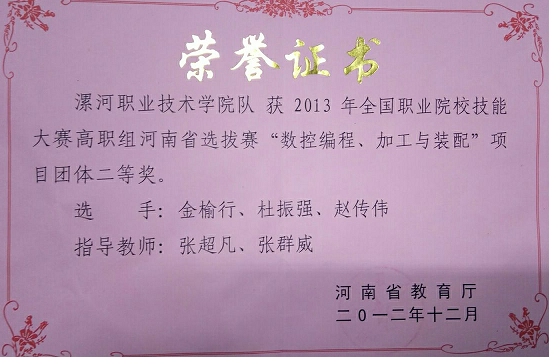 荣誉证书
漯河职业技术学院队 获 2013 年全国职业院校技能
大赛高职组河南省选拔赛“数控编程、加工与装配”项
目团体二等奖。
选 手：金榆行、杜振强、赵传伟
指导教师：张超凡、张群威
河南省教育厅
二〇一二年十二月